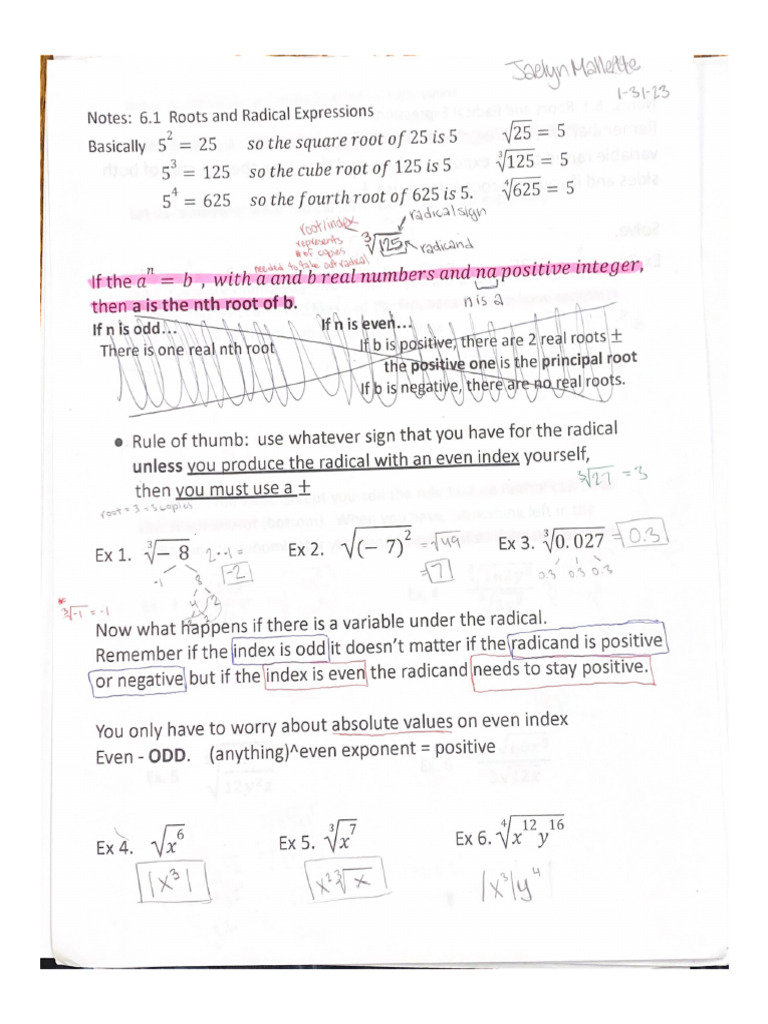 Jaelyn Mallette
1-31-23
Notes: 6.1 Roots and Radical Expressions
Basically 5² = 25 so the square root of 25 is 5 √25 = 5
5³ = 125 so the cube root of 125 is 5 ∛125 = 5
5⁴ = 625 so the fourth root of 625 is 5. ∜625 = 5
root/index
represents
# of copies
needed to take out radical
∛125
radical sign
radicand
If the aⁿ = b , with a and b real numbers and na positive integer,
then a is the nth root of b.
n is a
If n is odd… If n is even…
There is one real nth root If b is positive, there are 2 real roots ±
the positive one is the principal root
If b is negative, there are no real roots.
• Rule of thumb: use whatever sign that you have for the radical
unless you produce the radical with an even index yourself,
then you must use a ±
∛27 = 3
root = 3 = 3 copies
Ex 1. ∛− 8 2·-1 = -2
-1 8
4 2
2 2
Ex 2. √(− 7)² = √49
= 7
Ex 3. ∛0.027 = 0.3
0.3 0.3 0.3
* ∛-1 = -1
Now what happens if there is a variable under the radical.
Remember if the index is odd it doesn't matter if the radicand is positive
or negative but if the index is even the radicand needs to stay positive.
You only have to worry about absolute values on even index
Even - ODD. (anything)^even exponent = positive
Ex 4. √x⁶ Ex 5. ∛x⁷ Ex 6. ∜x¹²y¹⁶
|x³| x²∛x |x³|y⁴